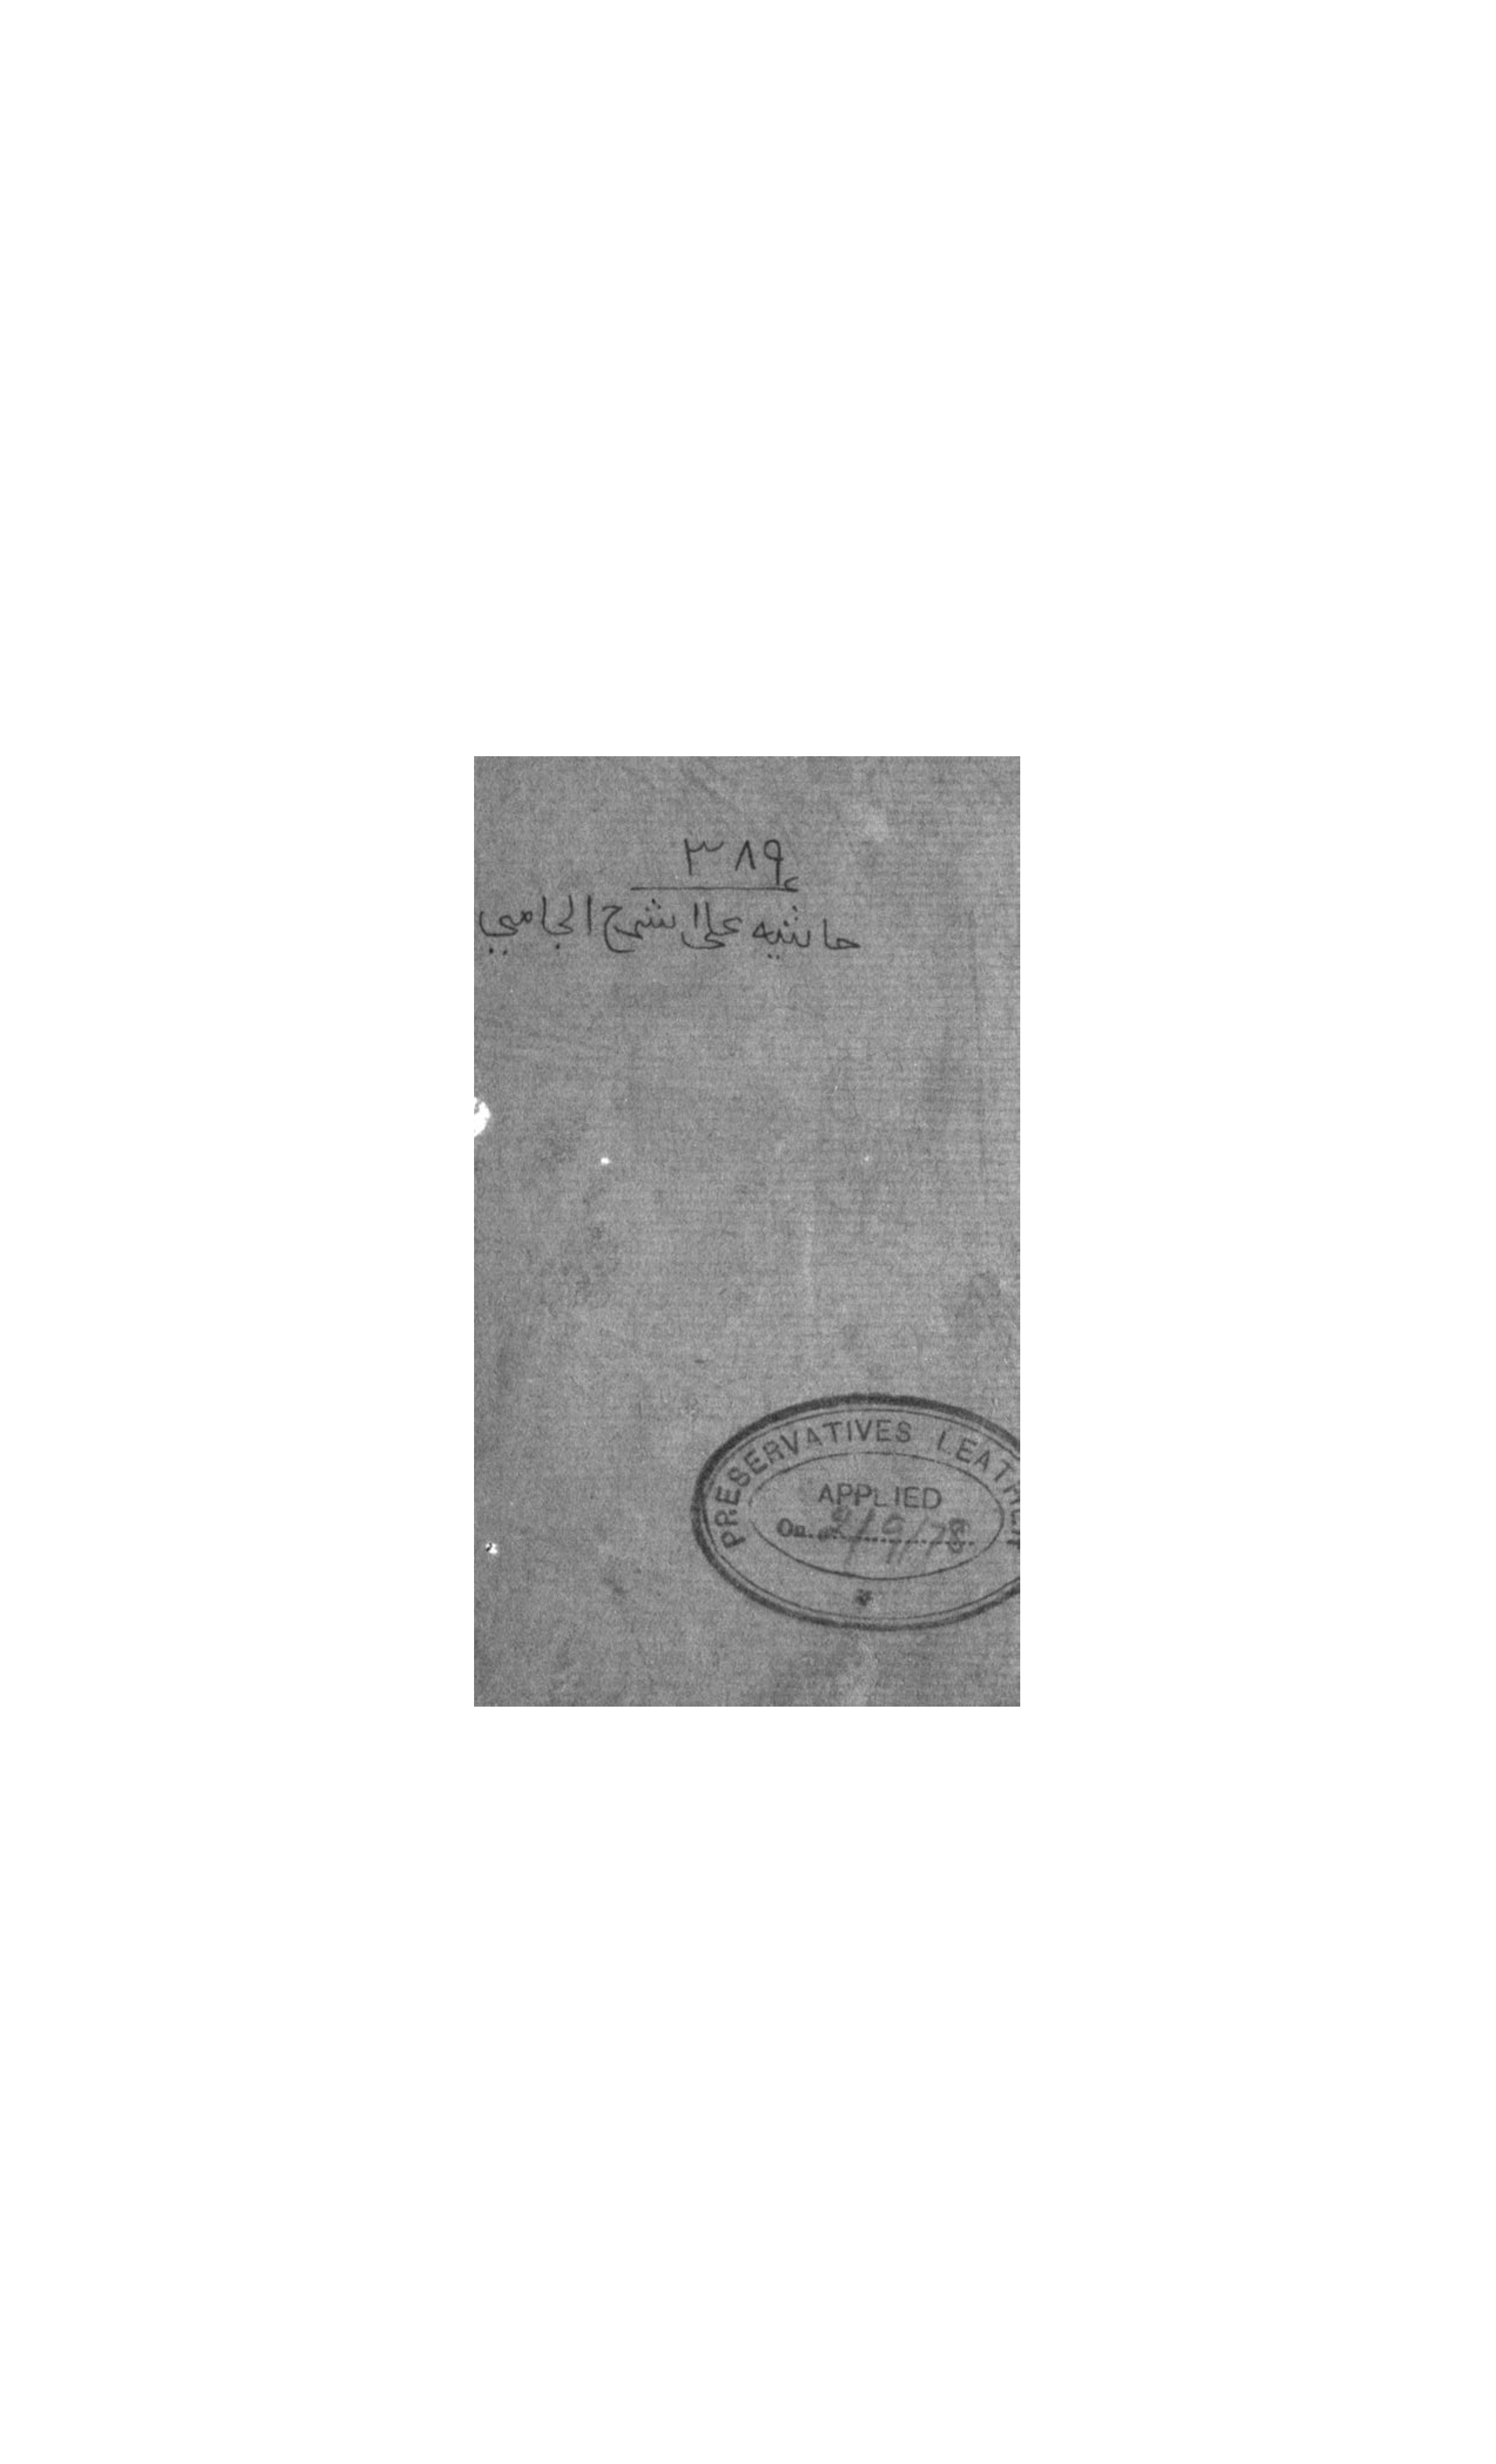 ٣٨٩ء
حاشیه علی الشرح الجامي
PRESERVATIVES LEATHER
APPLIED
On